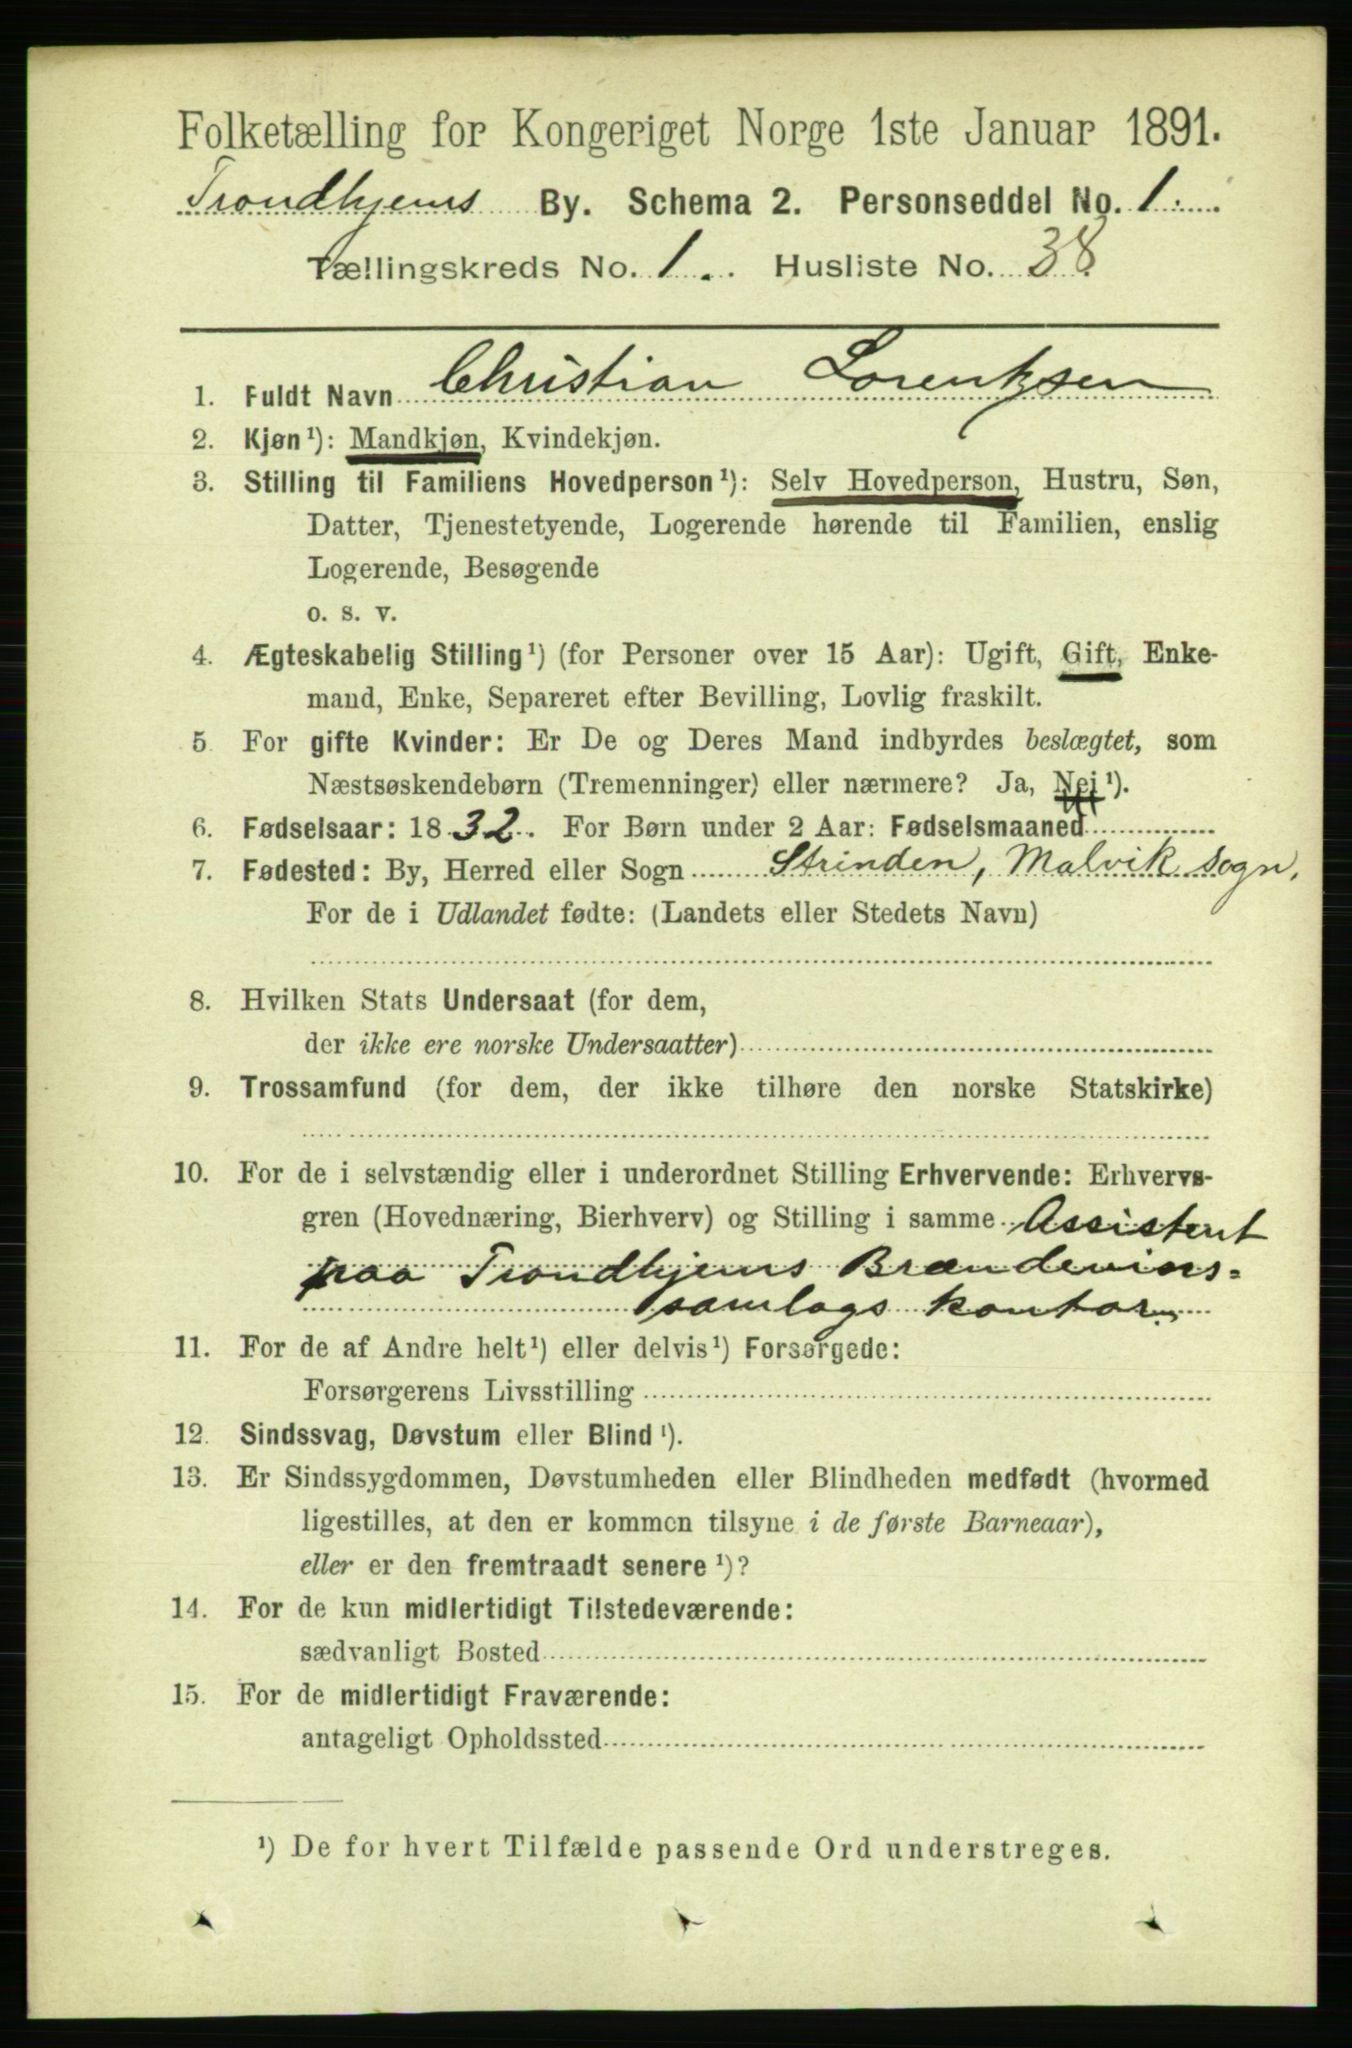 Folketælling for Kongeriget Norge 1ste Januar 1891.
Trondhjems By. Schema 2. Personseddel No. 1.
Tællingskreds No. 1. Husliste No. 38
1. Fuldt Navn Christian Lorentzen
2. Kjøn¹): Mandkjøn, Kvindekjøn.
3. Stilling til Familiens Hovedperson¹): Selv Hovedperson, Hustru, Søn,
Datter, Tjenestetyende, Logerende hørende til Familien, enslig
Logerende, Besøgende
o. s. v.
4. Ægteskabelig Stilling¹) (for Personer over 15 Aar): Ugift, Gift, Enke-
mand, Enke, Separeret efter Bevilling, Lovlig fraskilt.
5 For gifte Kvinder: Er De og Deres Mand indbyrdes beslægtet, som
Næstsøskendebørn (Tremenninger) eller nærmere? Ja, Nei¹).
6. Fødselsaar: 1832. For Børn under 2 Aar: Fødselsmaaned
7. Fødested: By, Herred eller Sogn Strinden, Malvik sogn.
For de i Udlandet fødte: (Landets eller Stedets Navn)
8. Hvilken Stats Undersaat (for dem,
der ikke ere norske Undersaatter)
9. Trossamfund (for dem, der ikke tilhøre den norske Statskirke)
10. For de i selvstændig eller i underordnet Stilling Erhvervende: Erhvervs-
gren (Hovednæring, Bierhverv) og Stilling i samme Assistent
paa Trondhjems Brændevins=
samlags kontor.
11. For de af Andre helt¹) eller delvis¹) Forsørgede:
Forsørgerens Livsstilling
12. Sindssvag, Døvstum eller Blind¹).
13. Er Sindssygdommen, Døvstumheden eller Blindheden medfødt (hvormed
ligestilles, at den er kommen tilsyne i de første Barneaar),
eller er den fremtraadt senere¹)?
14. For de kun midlertidigt Tilstedeværende:
sædvanligt Bosted
15. For de midlertidigt Fraværende:
antageligt Opholdssted
¹) De for hvert Tilfælde passende Ord understreges.